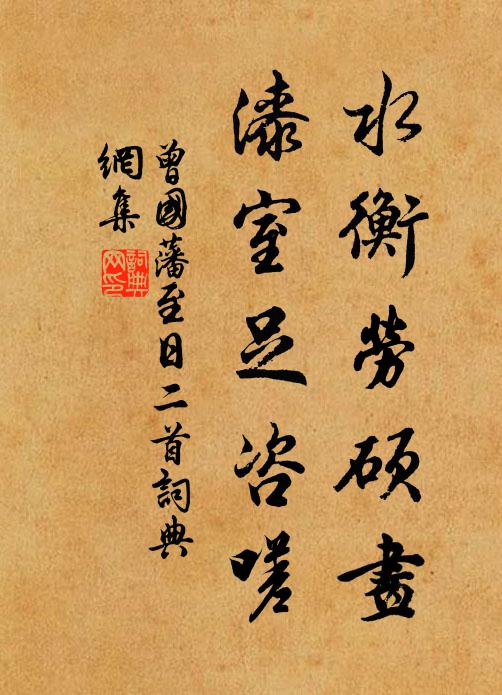 水衡勞碩畫
漆室足咨嗟
曾國藩至日二首詞典
網集
詞典
网印